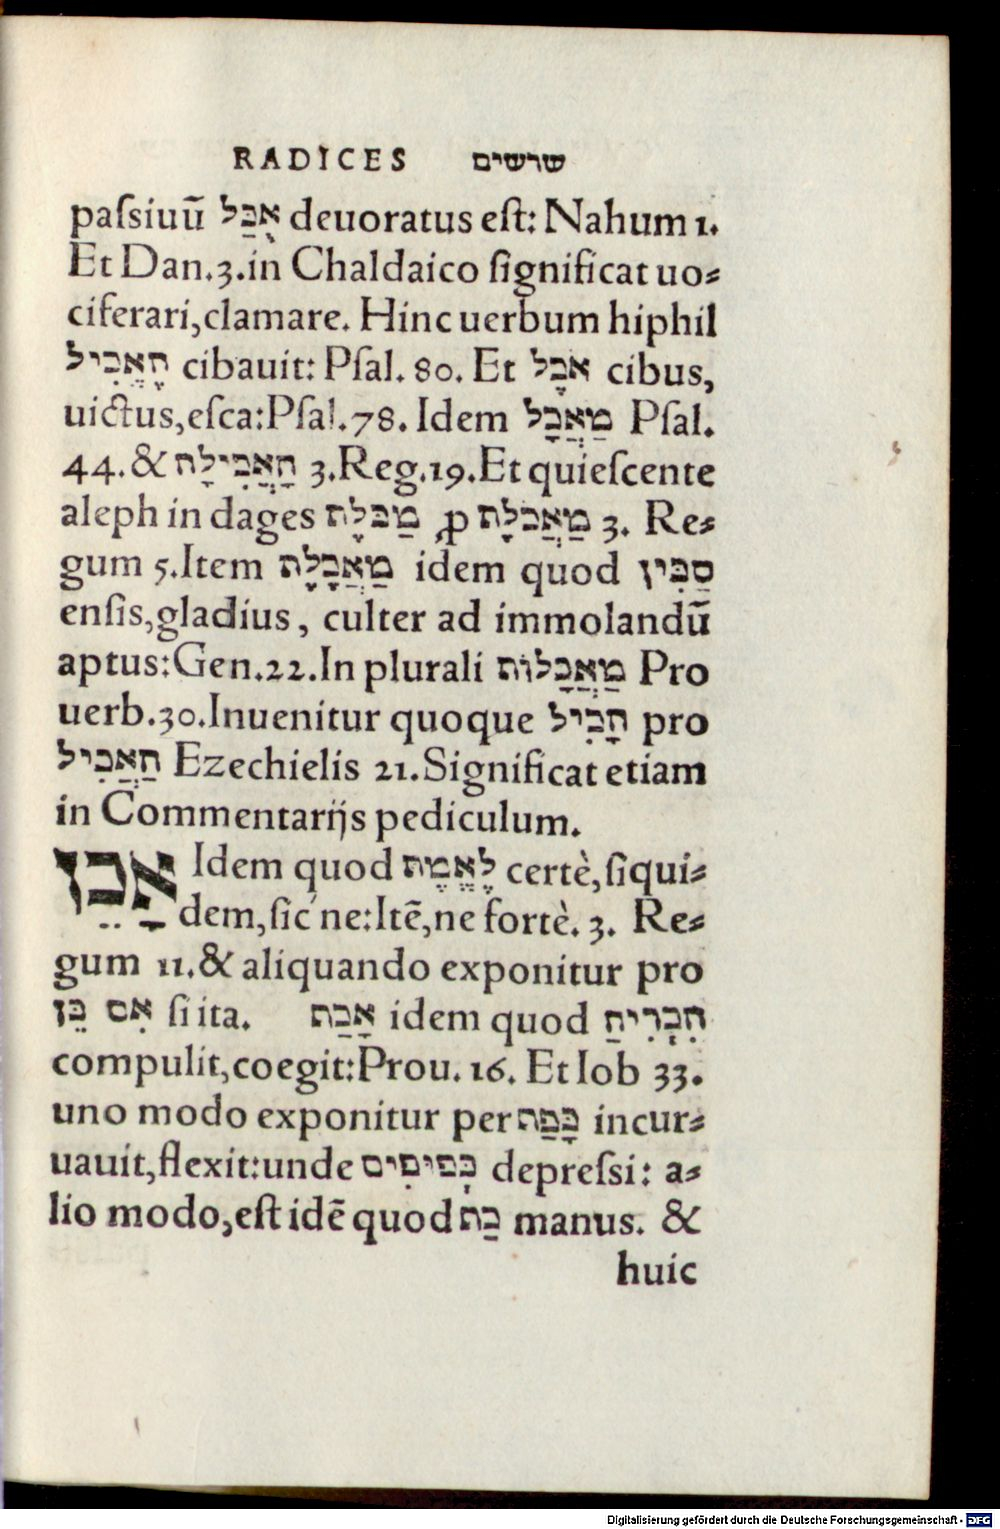 RADICES שרשים
paſsiuū אֻכַּל deuoratus eſt: Nahum 1.
Et Dan.3.in Chaldaico ſignificat uo⸗
ciferari,clamare. Hinc uerbum hiphil
הֶאֱכִיל cibauit: Pſal. 80. Et אֹכֶל cibus,
uictus,eſca:Pſal.78. Idem מַאֲכָל Pſal.
44.& הָאֲכִילָה 3.Reg.19.Et quieſcente
aleph in dages מַכֹּלֶת ꝓ מַאֲכֹלֶת 3. Re⸗
gum 5.Item מַאֲכֶלֶת idem quod סַכִּין
enſis,gladius, culter ad immolandū
aptus:Gen.22.In plurali מַאֲכָלוֹת Pro
uerb.30.Inuenitur quoque הָכִיל pro
הַאֲכִיל Ezechielis 21.Significat etiam
in Commentarijs pediculum.
אָכֵן Idem quod לֶאֱמֶת certè,ſiqui⸗
dem,ſic ne:Itē,ne fortè. 3. Re⸗
gum 11.& aliquando exponitur pro
אִם כֵּן ſi ita. אָכַף idem quod הִכְרִיחַ
compulit,coegit:Prou. 16. Et Iob 33.
uno modo exponitur per כָּפַף incur⸗
uauit,flexit:unde כְּפוּפִים depreſsi: a⸗
lio modo,eſt idē quod כַּף manus. &
huic
Digitalisierung gefördert durch die Deutsche Forschungsgemeinschaft - DFG